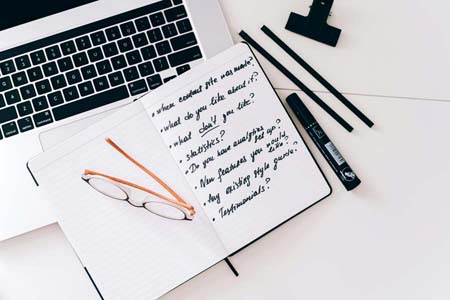 • Where current site was made?
• What do you like about it?
• What don't you like?
• Statistics?
• Do you have analytics
set up?
• New features you would
like?
• Any existing style guide?
• Testimonials?